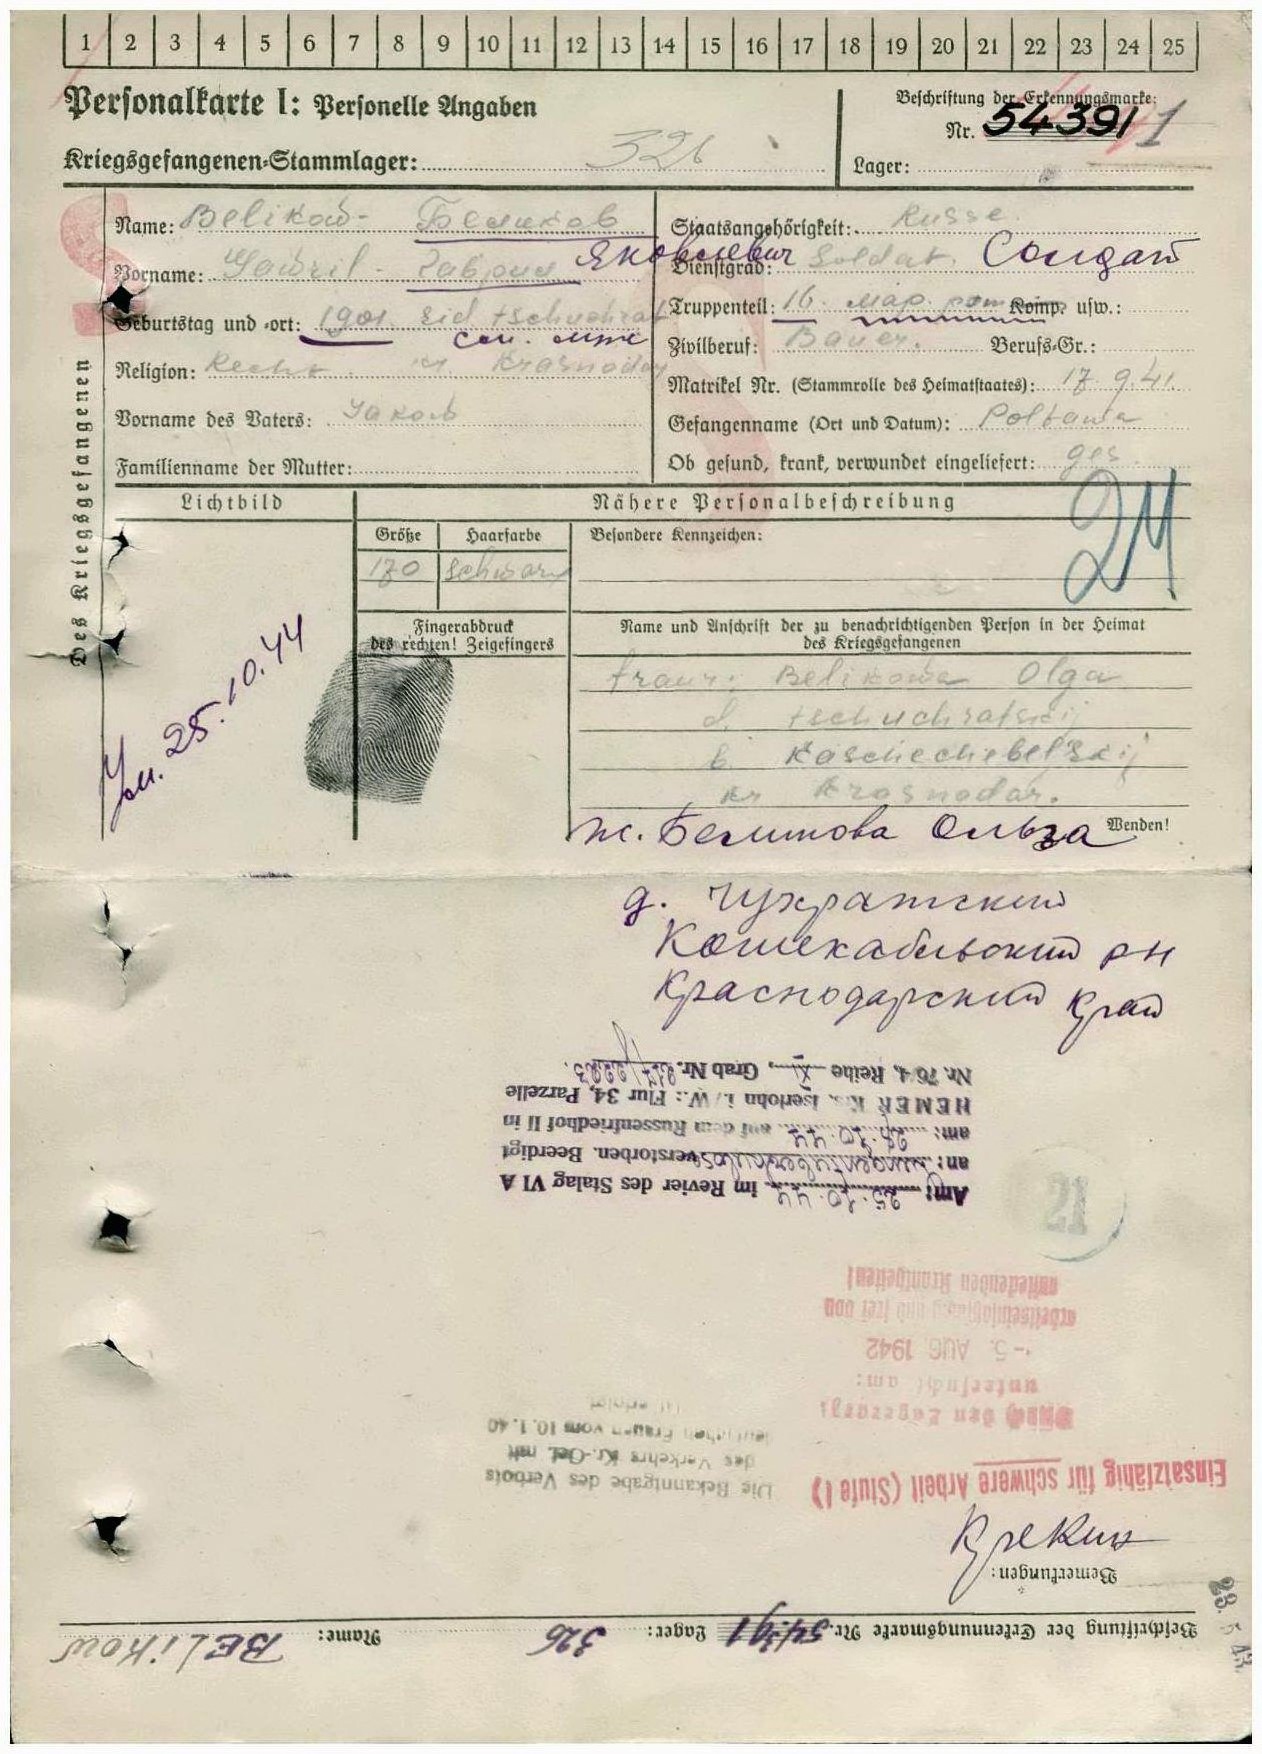 1 2 3 4 5 6 7 8 9 10 11 12 13 14 15 16 17 18 19 20 21 22 23 24 25
Personalkarte I: Personelle Angaben
Beschriftung der Erkennungsmarke:
Nr. 54391
Kriegsgefangenen-Stammlager: 326
Lager:
Des Kriegsgefangenen
Name: Belikow - Беликов
Vorname: Gawril - Гаврил Яковлевич
Geburtstag und -ort: 1901.
Religion: Krasnodar
Vorname des Vaters: Jakob
Familienname der Mutter:
Staatsangehörigkeit: Russe.
Dienstgrad: Soldat. Солдат
Truppenteil: 16. мар. Komp. usw.:
Zivilberuf: Bauer. Berufs-Gr.:
Matrikel Nr. (Stammrolle des Heimatstaates): 17.9.41.
Gefangenname (Ort und Datum): Poltawa
Ob gesund, krank, verwundet eingeliefert: ges.
Lichtbild
Nähere Personalbeschreibung
Größe
Haarfarbe
Besondere Kennzeichen:
170 schwarz
24
Fingerabdruck
des rechten! Zeigefingers
Name und Anschrift der zu benachrichtigenden Person in der Heimat
des Kriegsgefangenen
Ум. 25.10.44
Belikowa Olga
d. tschuchratskij
Kaschechebelskij
kr Krasnodar.
Wenden!
ж. Беликова Ольга
д. Чухратский
Кошехабльский рн
Краснодарский край
Nr. 76/4, Reihe XI, Grab Nr. 217/2223.
HEMER Krs. Iserlohn i./W.: Flur 34, Parzelle
am: 26.10.44 auf dem Russenfriedhof II in
an: Lungentuberkulose verstorben. Beerdigt
Am: 25.10.44 im Revier des Stalag VI A
21
ansteckenden Krankheiten!
arbeitseinsatzfähig und frei von
- 5. AUG 1942
untersucht am:
Durch den Lagerarzt
ist erfolgt
deutschen Frauen vom 10.1.40
des Verkehrs Kr.-Gef. mit
Die Bekanntgabe des Verbots
Einsatzfähig für schwere Arbeit (Stufe I)
Bemerkungen:
23. 5. 43
Beschriftung der Erkennungsmarke Nr. 54391 Lager: 326 Name: BELIKOW